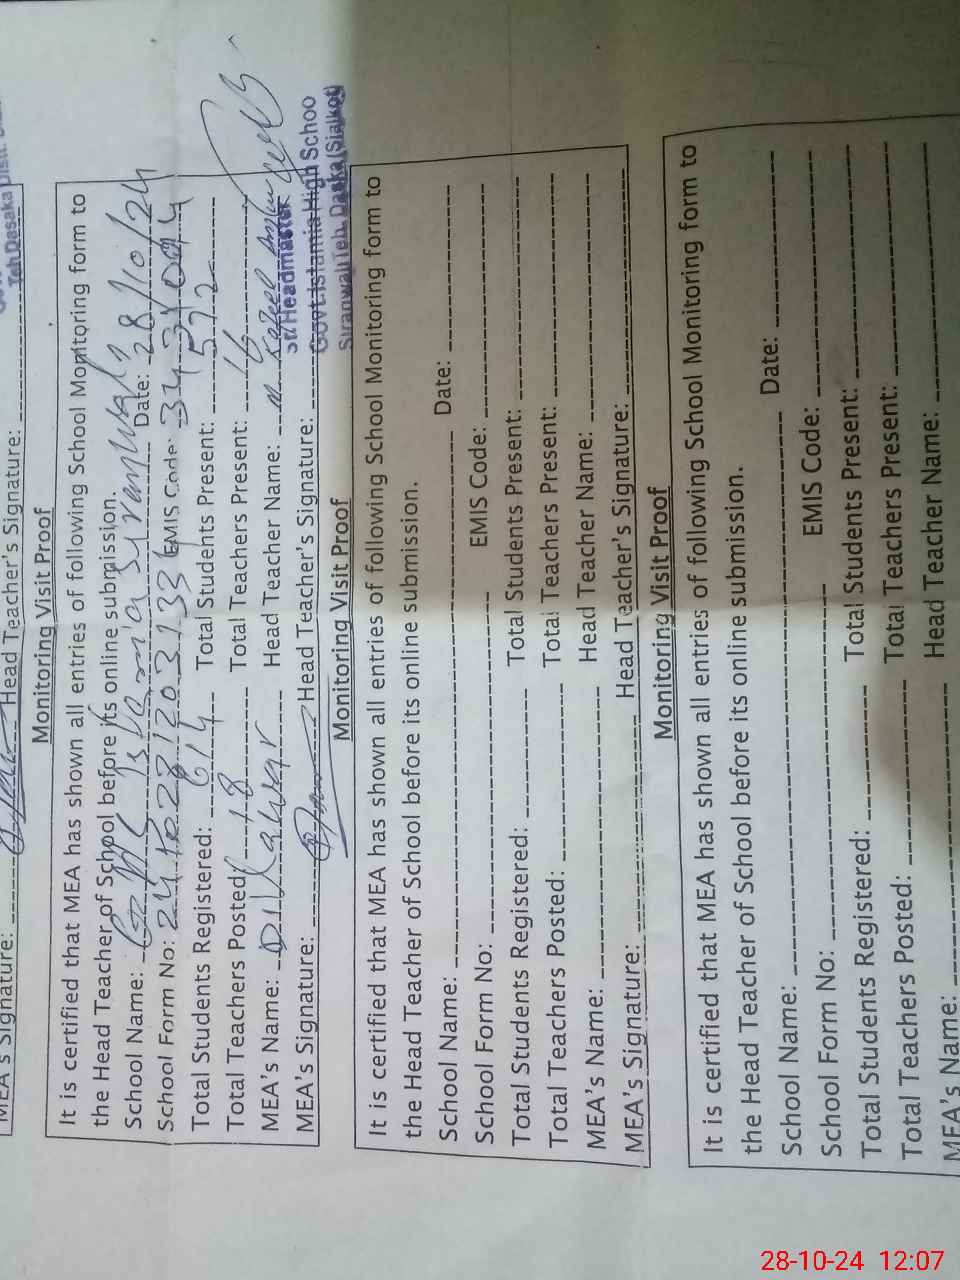 MEA's Signature: Head Teacher's Signature:
Teh Dasaka Distt.
Monitoring Visit Proof
It is certified that MEA has shown all entries of following School Monitoring form to
the Head Teacher of School before its online submission.
School Name: Islamia Date: 28/10/24
School Form No: EMIS Code:
Total Students Registered: 614 Total Students Present: 572
Total Teachers Posted: 18 Total Teachers Present: 16
MEA's Name: Dilawar Head Teacher Name:
Sr. Headmaster
MEA's Signature: Head Teacher's Signature:
Govt. Islamia High Schoo
Siranwali Teh. Daska (Sialkot)
Monitoring Visit Proof
It is certified that MEA has shown all entries of following School Monitoring form to
the Head Teacher of School before its online submission.
School Name: Date:
School Form No: EMIS Code:
Total Students Registered: Total Students Present:
Total Teachers Posted: Total Teachers Present:
MEA's Name: Head Teacher Name:
MEA's Signature: Head Teacher's Signature:
Monitoring Visit Proof
It is certified that MEA has shown all entries of following School Monitoring form to
the Head Teacher of School before its online submission.
School Name: Date:
School Form No: EMIS Code:
Total Students Registered: Total Students Present:
Total Teachers Posted: Total Teachers Present:
MEA's Name: Head Teacher Name:
28-10-24 12:07